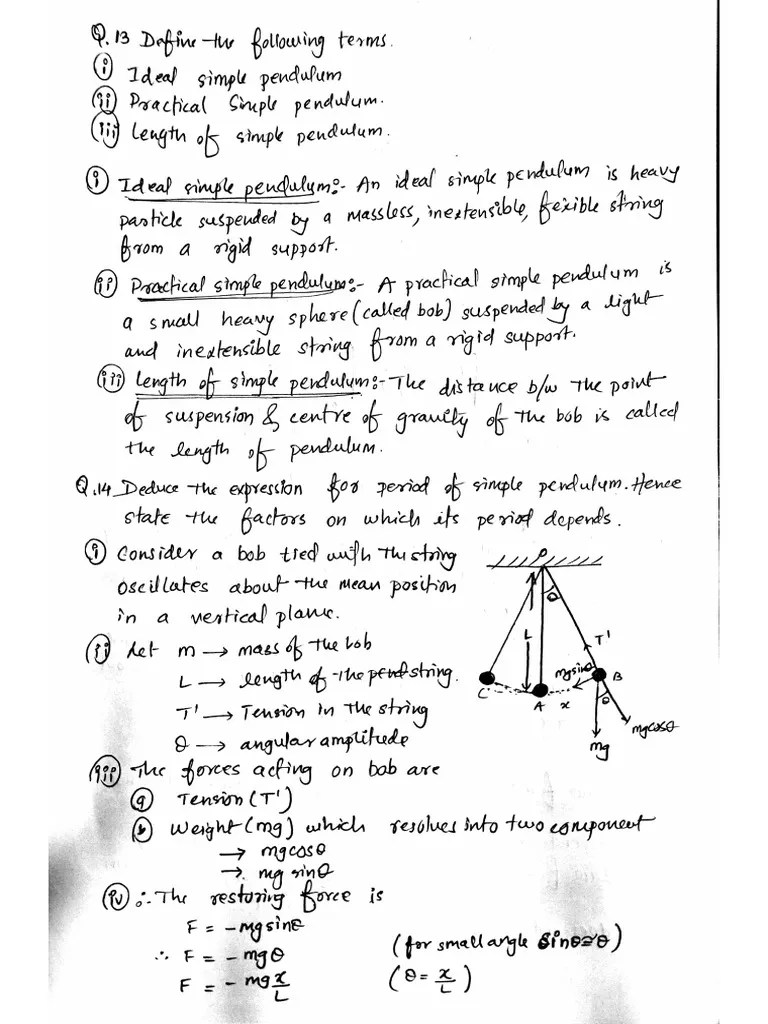 Q.13 Define the following terms.
(i) Ideal simple pendulum
(ii) Practical Simple pendulum.
(iii) Length of simple pendulum.
(i) Ideal simple pendulum:- An ideal simple pendulum is heavy
particle suspended by a massless, inextensible, flexible string
from a rigid support.
(ii) Practical simple pendulum:- A practical simple pendulum is
a small heavy sphere (called bob) suspended by a light
and inextensible string from a rigid support.
(iii) Length of simple pendulum:- The distance b/w the point
of suspension & centre of gravity of the bob is called
the length of pendulum.
Q.14 Deduce the expression for period of simple pendulum. Hence
state the factors on which its period depends.
(i) Consider a bob tied with the string
oscillates about the mean position
in a vertical plane.
(ii) Let m → mass of the bob
L → length of the string.
T' → Tension in the string
θ → angular amplitude
P
θ
L
T'
mg sinθ
B
C
A
x
θ
mg cosθ
mg
(iii) The forces acting on bob are
(a) Tension (T')
(b) Weight (mg) which resolves into two component
→ mg cosθ
→ mg sinθ
(iv) ∴ The restoring force is
F = -mg sinθ
∴ F = - mg θ (for small angle sinθ≅θ)
F = - mg x/L (θ = x/L)